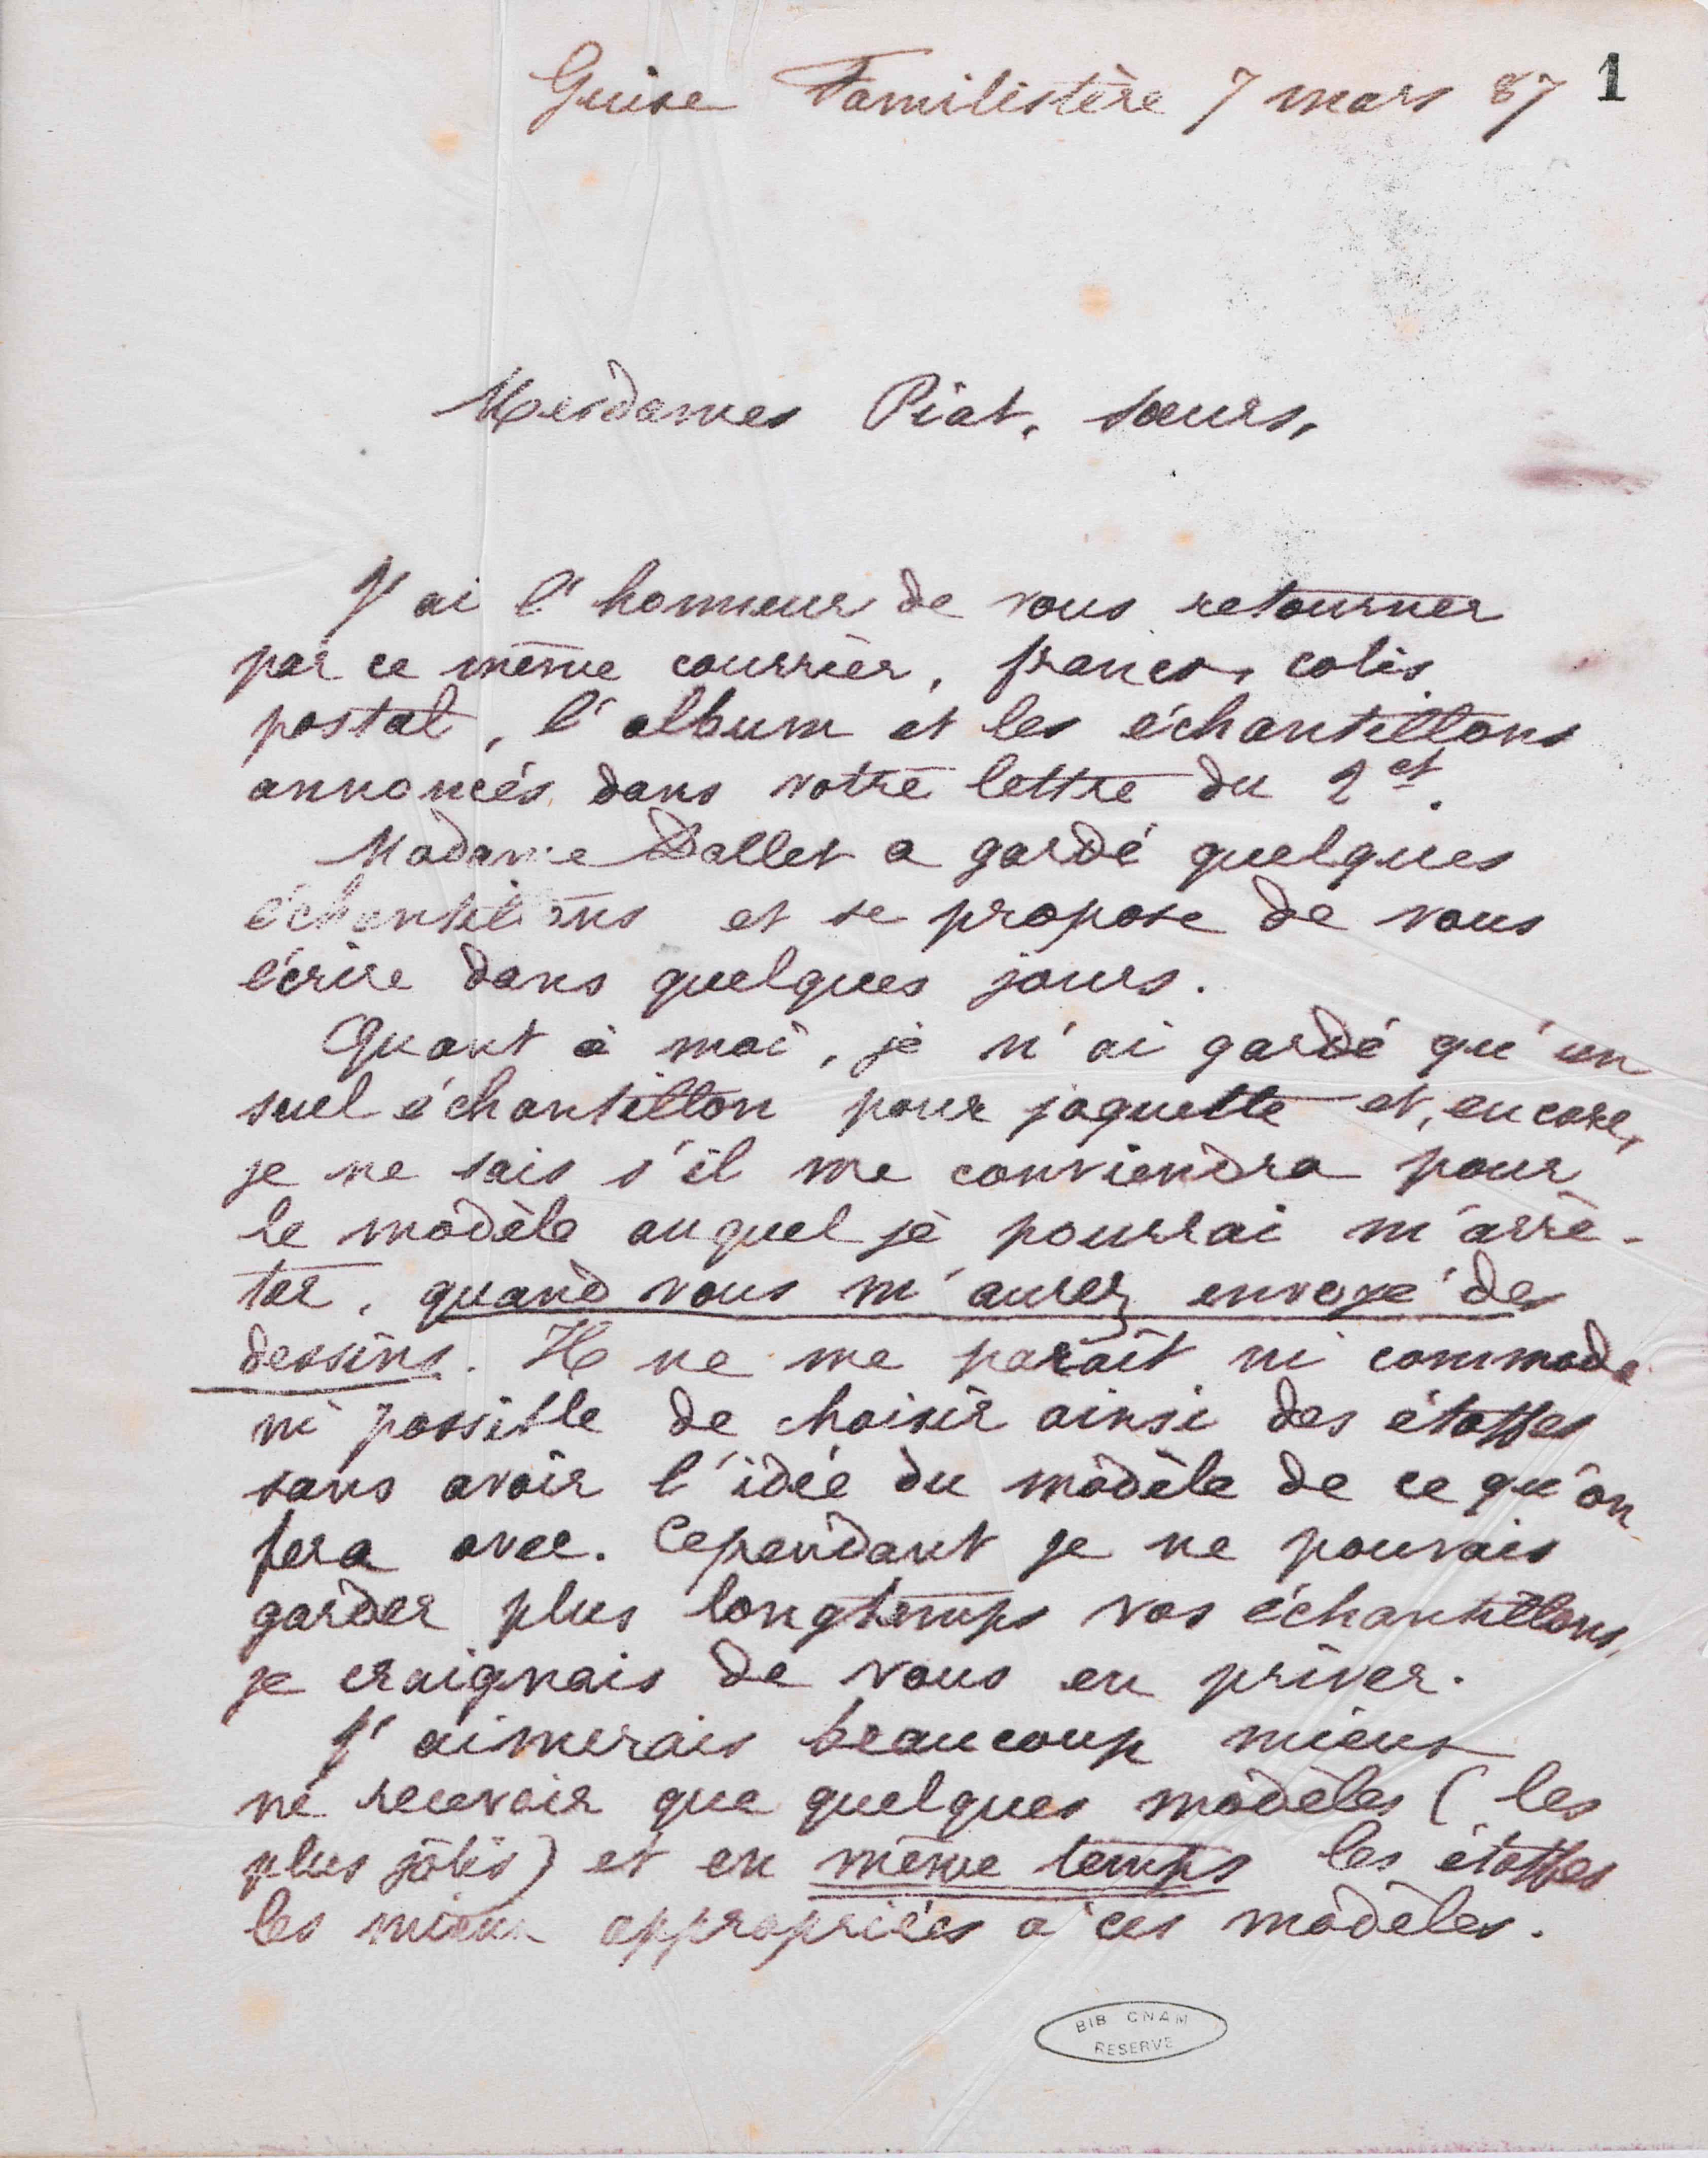 Guise Familistère 7 mars 87 1
Mesdames Piat, sœurs,
J'ai l'honneur de vous retourner
par ce même courrier, franco, colis
postal, l'album et les échantillons
annoncés dans votre lettre du 2 ct.
Madame Dallet a gardé quelques
échantillons et se propose de vous
écrire dans quelques jours.
Quant à moi, je n'ai gardé qu'un
seul échantillon pour jaquette et, encore,
je ne sais s'il me conviendra pour
le modèle auquel je pourrai m'arrê-
ter, quand vous m'aurez envoyé des
dessins. Il ne me paraît ni commode
ni possible de choisir ainsi des étoffes
sans avoir l'idée du modèle de ce qu'on
fera avec. Cependant je ne pouvais
garder plus longtemps vos échantillons,
je craignais de vous en priver.
J'aimerais beaucoup mieux
ne recevoir que quelques modèles (les
plus jolis) et en même temps les étoffes
les mieux appropriées à ces modèles.
BIB CNAM
RESERVE